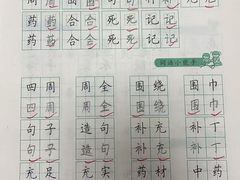 药药合合死死记记
药药合合死死记记
词语小能手
四周 周全 围绕 围巾
四周 周全 围绕 围巾
句子 造句 补充 补丁
句子 造句 补充 补丁
充足 充实 药材 中药